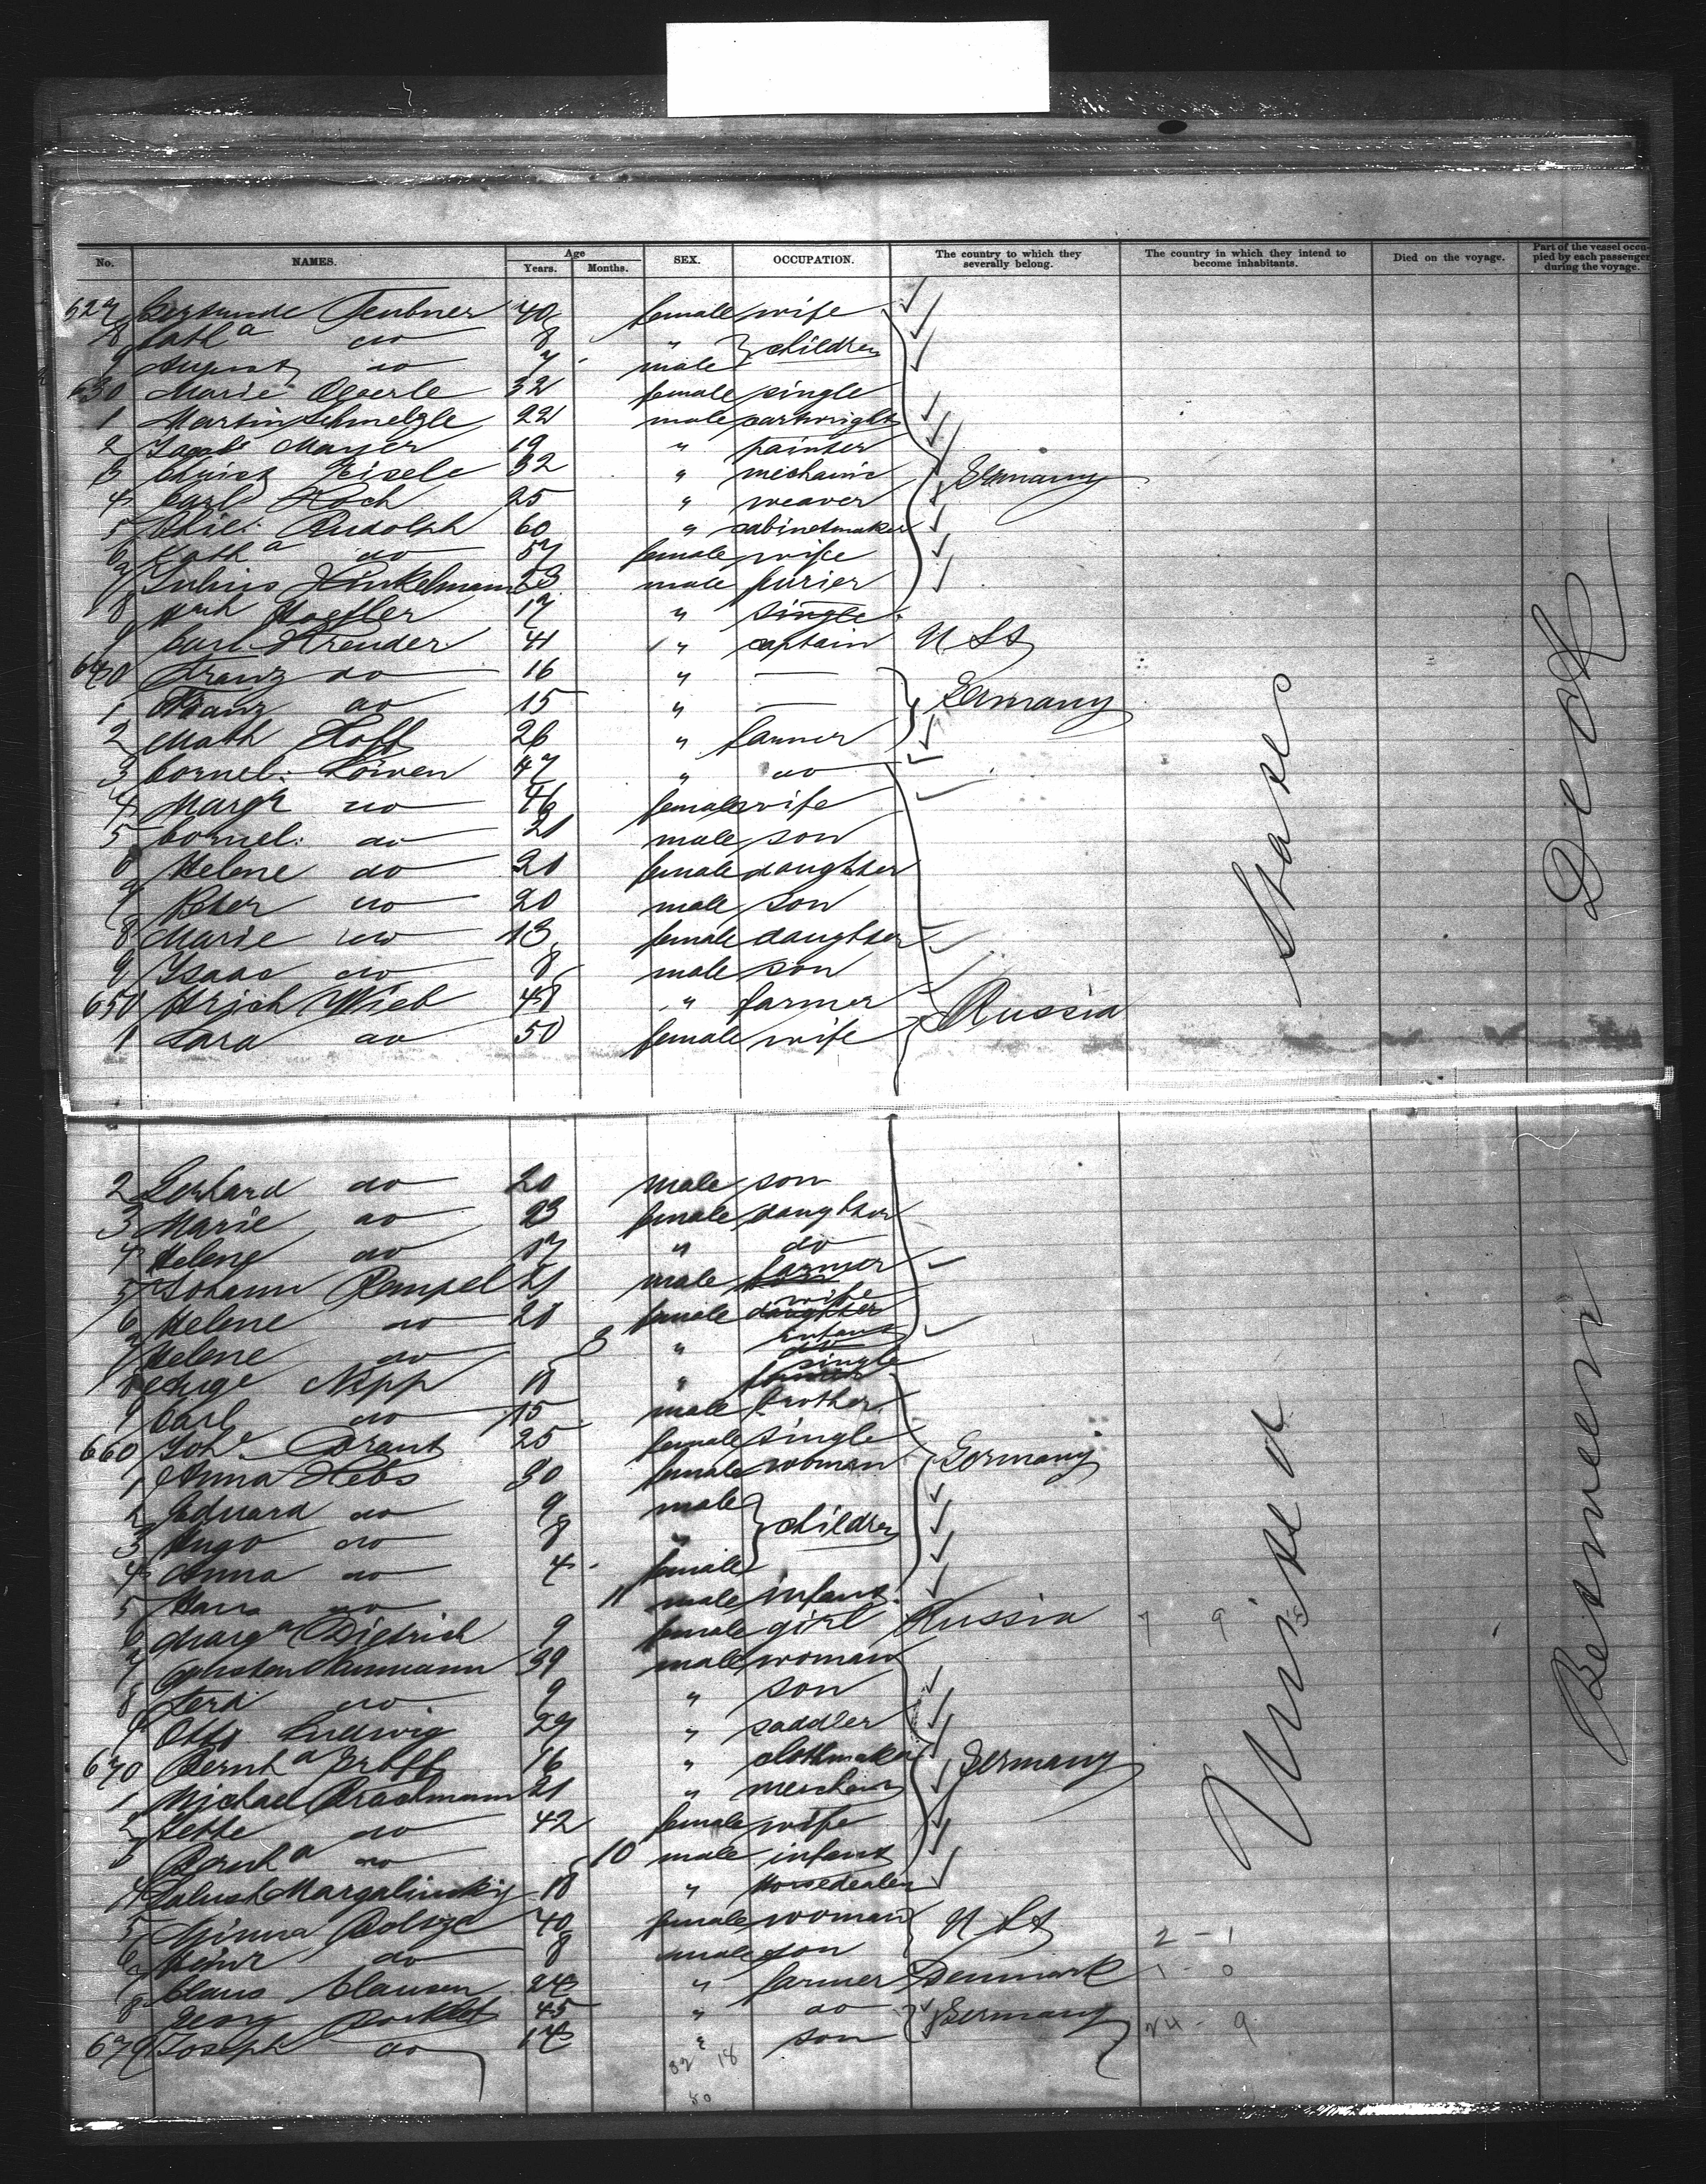 No. NAMES. Age Years. Months. SEX. OCCUPATION. The country to which they severally belong. The country in which they intend to become inhabitants. Died on the voyage. Part of the vessel occupied by each passenger during the voyage.
627 Gertrude Teubner 40 female wife
8 Cath a do 8 " } children
9 August do 7 male
630 Marie 32 female single
1 Martin Schmelzle 22 male cartwright
2 Jacob Mayer 19 " painter
3 Christ Eisele 32 " mechanic Germany
4 Carl Koch 25 " weaver
5 Rudolph 60 " cabinetmaker
6 Cath a do 57 female wife
7 Julius Hinkelmann 23 male furier
8 Hoefler 17 " single
9 Carl 41 " captain U St
640 Franz do 16 " —
1 do 15 " — Germany
2 Math Hoff 26 " farmer
3 Cornel: Löwen 47 " do
4 Marg a do 46 female wife
5 Cornel: do 21 male son
6 Helene do 21 female daughter
7 Peter do 20 male son
8 Marie do 13 female daughter
9 Isaac do 8 male son
650 Hrich Wieb 48 " farmer Russia
1 Sara do 50 female wife
States
Deck
2 Gerhard do 20 male son
3 Marie do 23 female daughter
4 Helene do 17 " do
5 Johann Rempel 21 male farmer
6 Helene do 21 female daughter wife
7 Helene do 8 " do Infant
8 Nipp 18 " farmer single
9 Carl do 15 male brother
660 Joh e Brant 25 female single
1 Anna Hebs 30 female woman Germany
2 Eduard do 9 male
3 Hugo do 8 " } children
4 Anna do 4 female
5 Hans do 11 male infant
6 Marg a Dietrich 9 female girl Russia 7 9
7 Naumann 39 male woman
8 Ferd. do 9 " son
9 Otto Ludwig 29 " saddler
670 Bernh a 16 " clothmaker Germany
1 Michael Brachmann 21 " merchant
2 Jette do 42 female wife
3 Bernh a do 10 male infant
4 Margolinskij 18 " Horsedealer
5 Minna 40 female woman U St
6 Heinr do 8 male son 2 - 1
7 Claus Clausen 24 " farmer Denmark 1 - 0
8 Georg 45 " do Germany
679 Joseph do 14 " son 24 - 9
32 18
50
United
Between